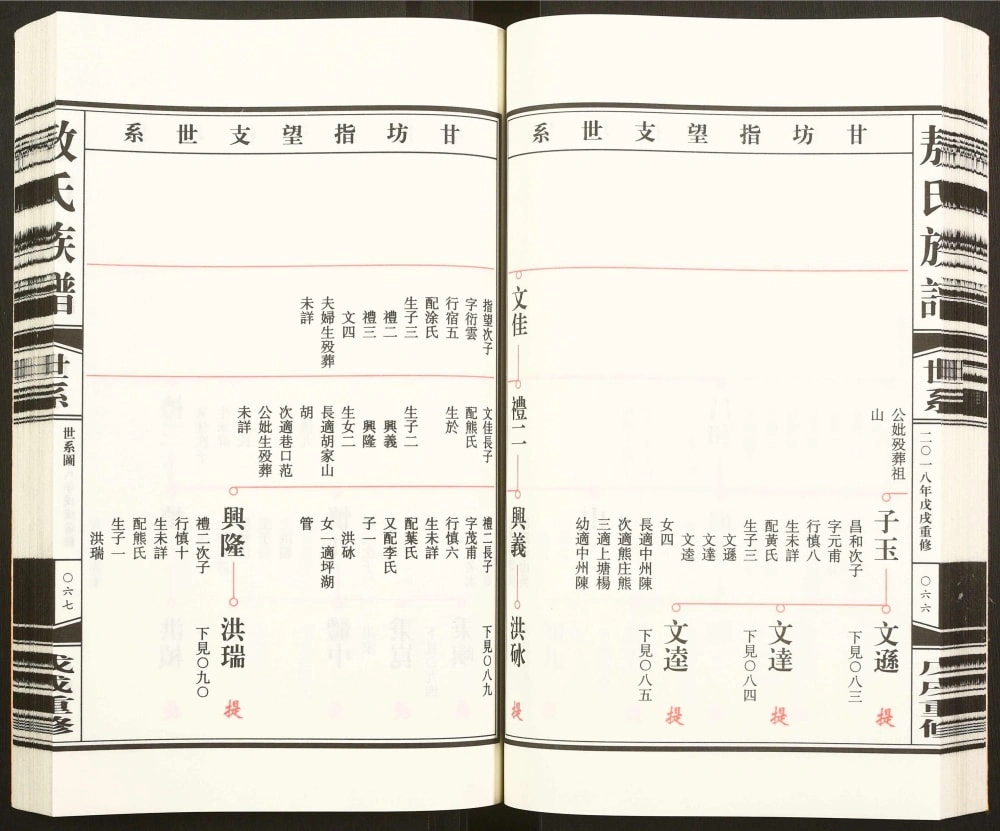 敖氏族譜
世系
二〇一八年戊戌重修
〇六六
戊戌重修
甘坊指望支世系
公妣歿葬祖
山
子玉
昌和次子
字元甫
行慎八
生未詳
配黃氏
生子三
文遜
文達
文逵
女四
長適中州陳
次適熊庄熊
三適上塘楊
幼適中州陳
文遜
下見〇八三
提
文達
下見〇八四
提
文逵
下見〇八五
提
文佳
禮二
興義
洪砯
提
甘坊指望支世系
指望次子
字衍雲
行宿五
配涂氏
生子三
禮二
禮三
文四
夫婦生歿葬
未詳
文佳長子
配熊氏
生於
生子二
興義
興隆
生女二
長適胡家山
胡
次適巷口范
公妣生歿葬
未詳
禮二長子
字茂甫
行慎六
生未詳
配葉氏
又配李氏
子一
洪砯
女一適坪湖
管
下見〇八九
興隆
禮二次子
行慎十
生未詳
配熊氏
生子一
洪瑞
洪瑞
下見〇九〇
提
敖氏族譜
世系
世系圖
〇六七
戊戌重修